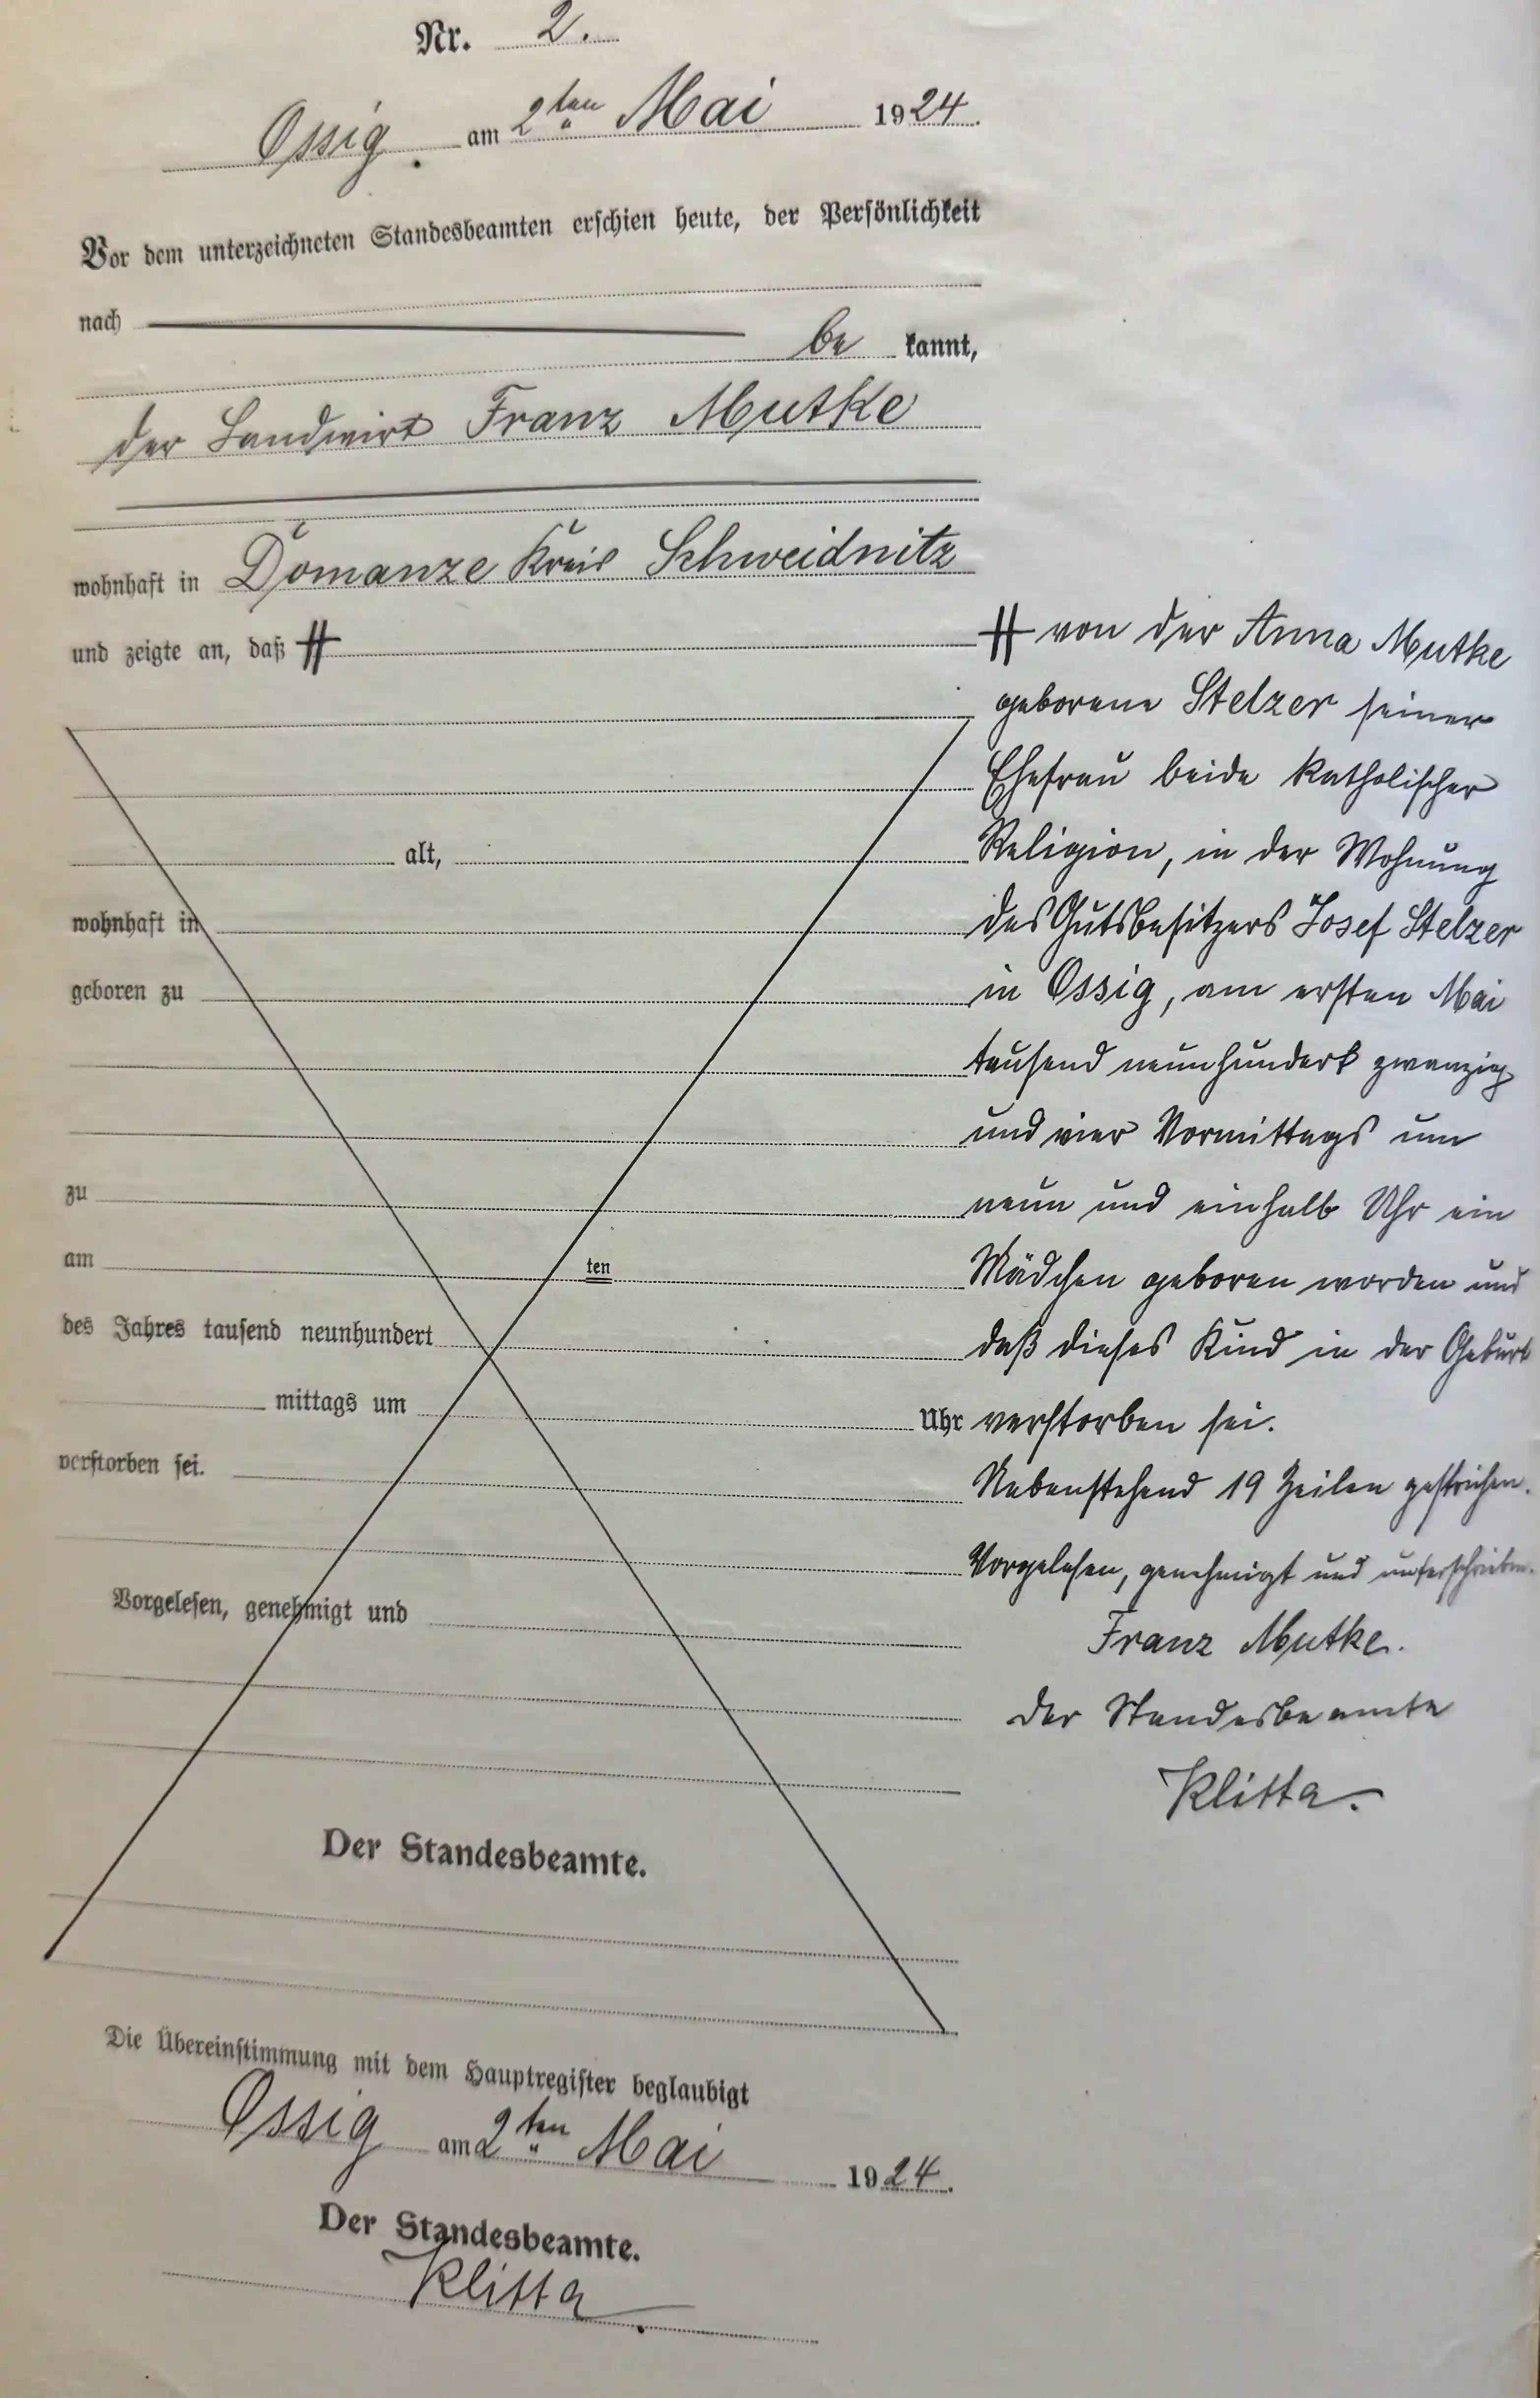 Nr. 2.
Ossig. am 2ten Mai 1924.
Vor dem unterzeichneten Standesbeamten erschien heute, der Persönlichkeit
nach
be kannt,
der Landwirt Franz Mutke
wohnhaft in Domanze Kreis Schweidnitz
und zeigte an, daß #
alt,
wohnhaft in
geboren zu
zu
am ten
des Jahres tausend neunhundert
mittags um Uhr
verstorben sei.
Vorgelesen, genehmigt und
Der Standesbeamte.
# von der Anna Mutke
geborene Stelzer seiner
Ehefrau beide katholischer
Religion, in der Wohnung
des Gutsbesitzers Josef Stelzer
in Ossig, am ersten Mai
tausend neunhundert zwanzig
und vier Vormittags um
neun und einhalb Uhr ein
Mädchen geboren worden und
daß dieses Kind in der Geburt
verstorben sei.
Nebenstehend 19 Zeilen gestrichen.
Vorgelesen, genehmigt und unterschrieben.
Franz Mutke.
Der Standesbeamte
Klitta.
Die Übereinstimmung mit dem Hauptregister beglaubigt
Ossig am 2ten Mai 1924.
Der Standesbeamte.
Klitta.